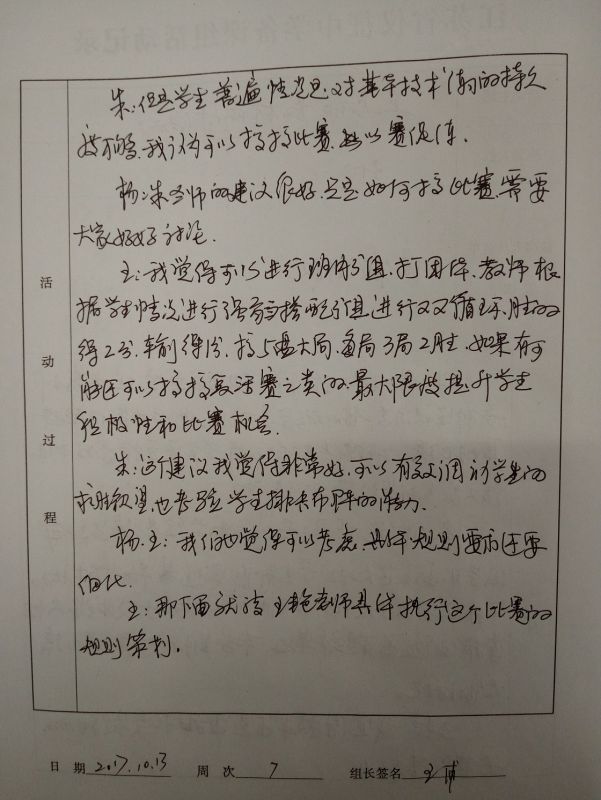 朱:但是学生普遍情况是对基本技术练习的持久
度不够,我认为可以搞搞比赛,以赛促练。
杨:朱老师的建议很好,只是如何搞比赛,需要
大家好好讨论。
王:我觉得可以进行班级分组,打团体,教师根
据学生情况进行强弱搭配分组,进行双双循环,胜的
得2分,输得1分,搞5盘大局,每局3局2胜,如果有可
能还可以搞搞复活赛之类的,最大限度提升学生
积极性和比赛机会。
朱:这个建议我觉得非常好,可以有效调动学生的
求胜欲望,也考验学生排兵布阵的潜力。
杨.王:我们也觉得可以考虑,具体规则要求还要
细化。
王:那下面就请王艳老师具体执行这个比赛的
规则策划。
活动过程
日期 2017.10.13 周次 7 组长签名 王